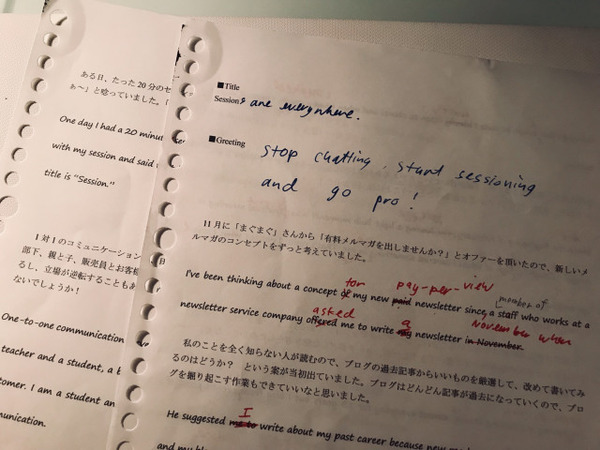 ある日、たった20分のセ
ぁ〜」と唸っていました。
One day I had a 20 minut
with my session and said
title is “Session.”
1対1のコミュニケーション
部下、親と子、販売員とお客様
るし、立場が逆転することもあ
ないでしょうか！
One-to-one communication
teacher and a student, a b
tomer. I am a student an
munication.
■Title
Sessions are everywhere.
■Greeting
stop chatting, start sessioning
and go pro!
11月に「まぐまぐ」さんから「有料メルマガを出しませんか？」とオファーを頂いたので、新しいメ
ルマガのコンセプトをずっと考えていました。
for pay-per-view member of
I've been thinking about a concept of my new paid newsletter since a staff who works at a
asked a November when
newsletter service company offered me to write my newsletter in November.
私のことを全く知らない人が読むので、ブログの過去記事からいいものを厳選して、改めて書いてみ
るのはどうか？ という案が当初出ていました。ブログはどんどん記事が過去になっていくので、ブロ
グを掘り起こす作業もできていいなと思いました。
I
He suggested me to write about my past career because new
and my bl